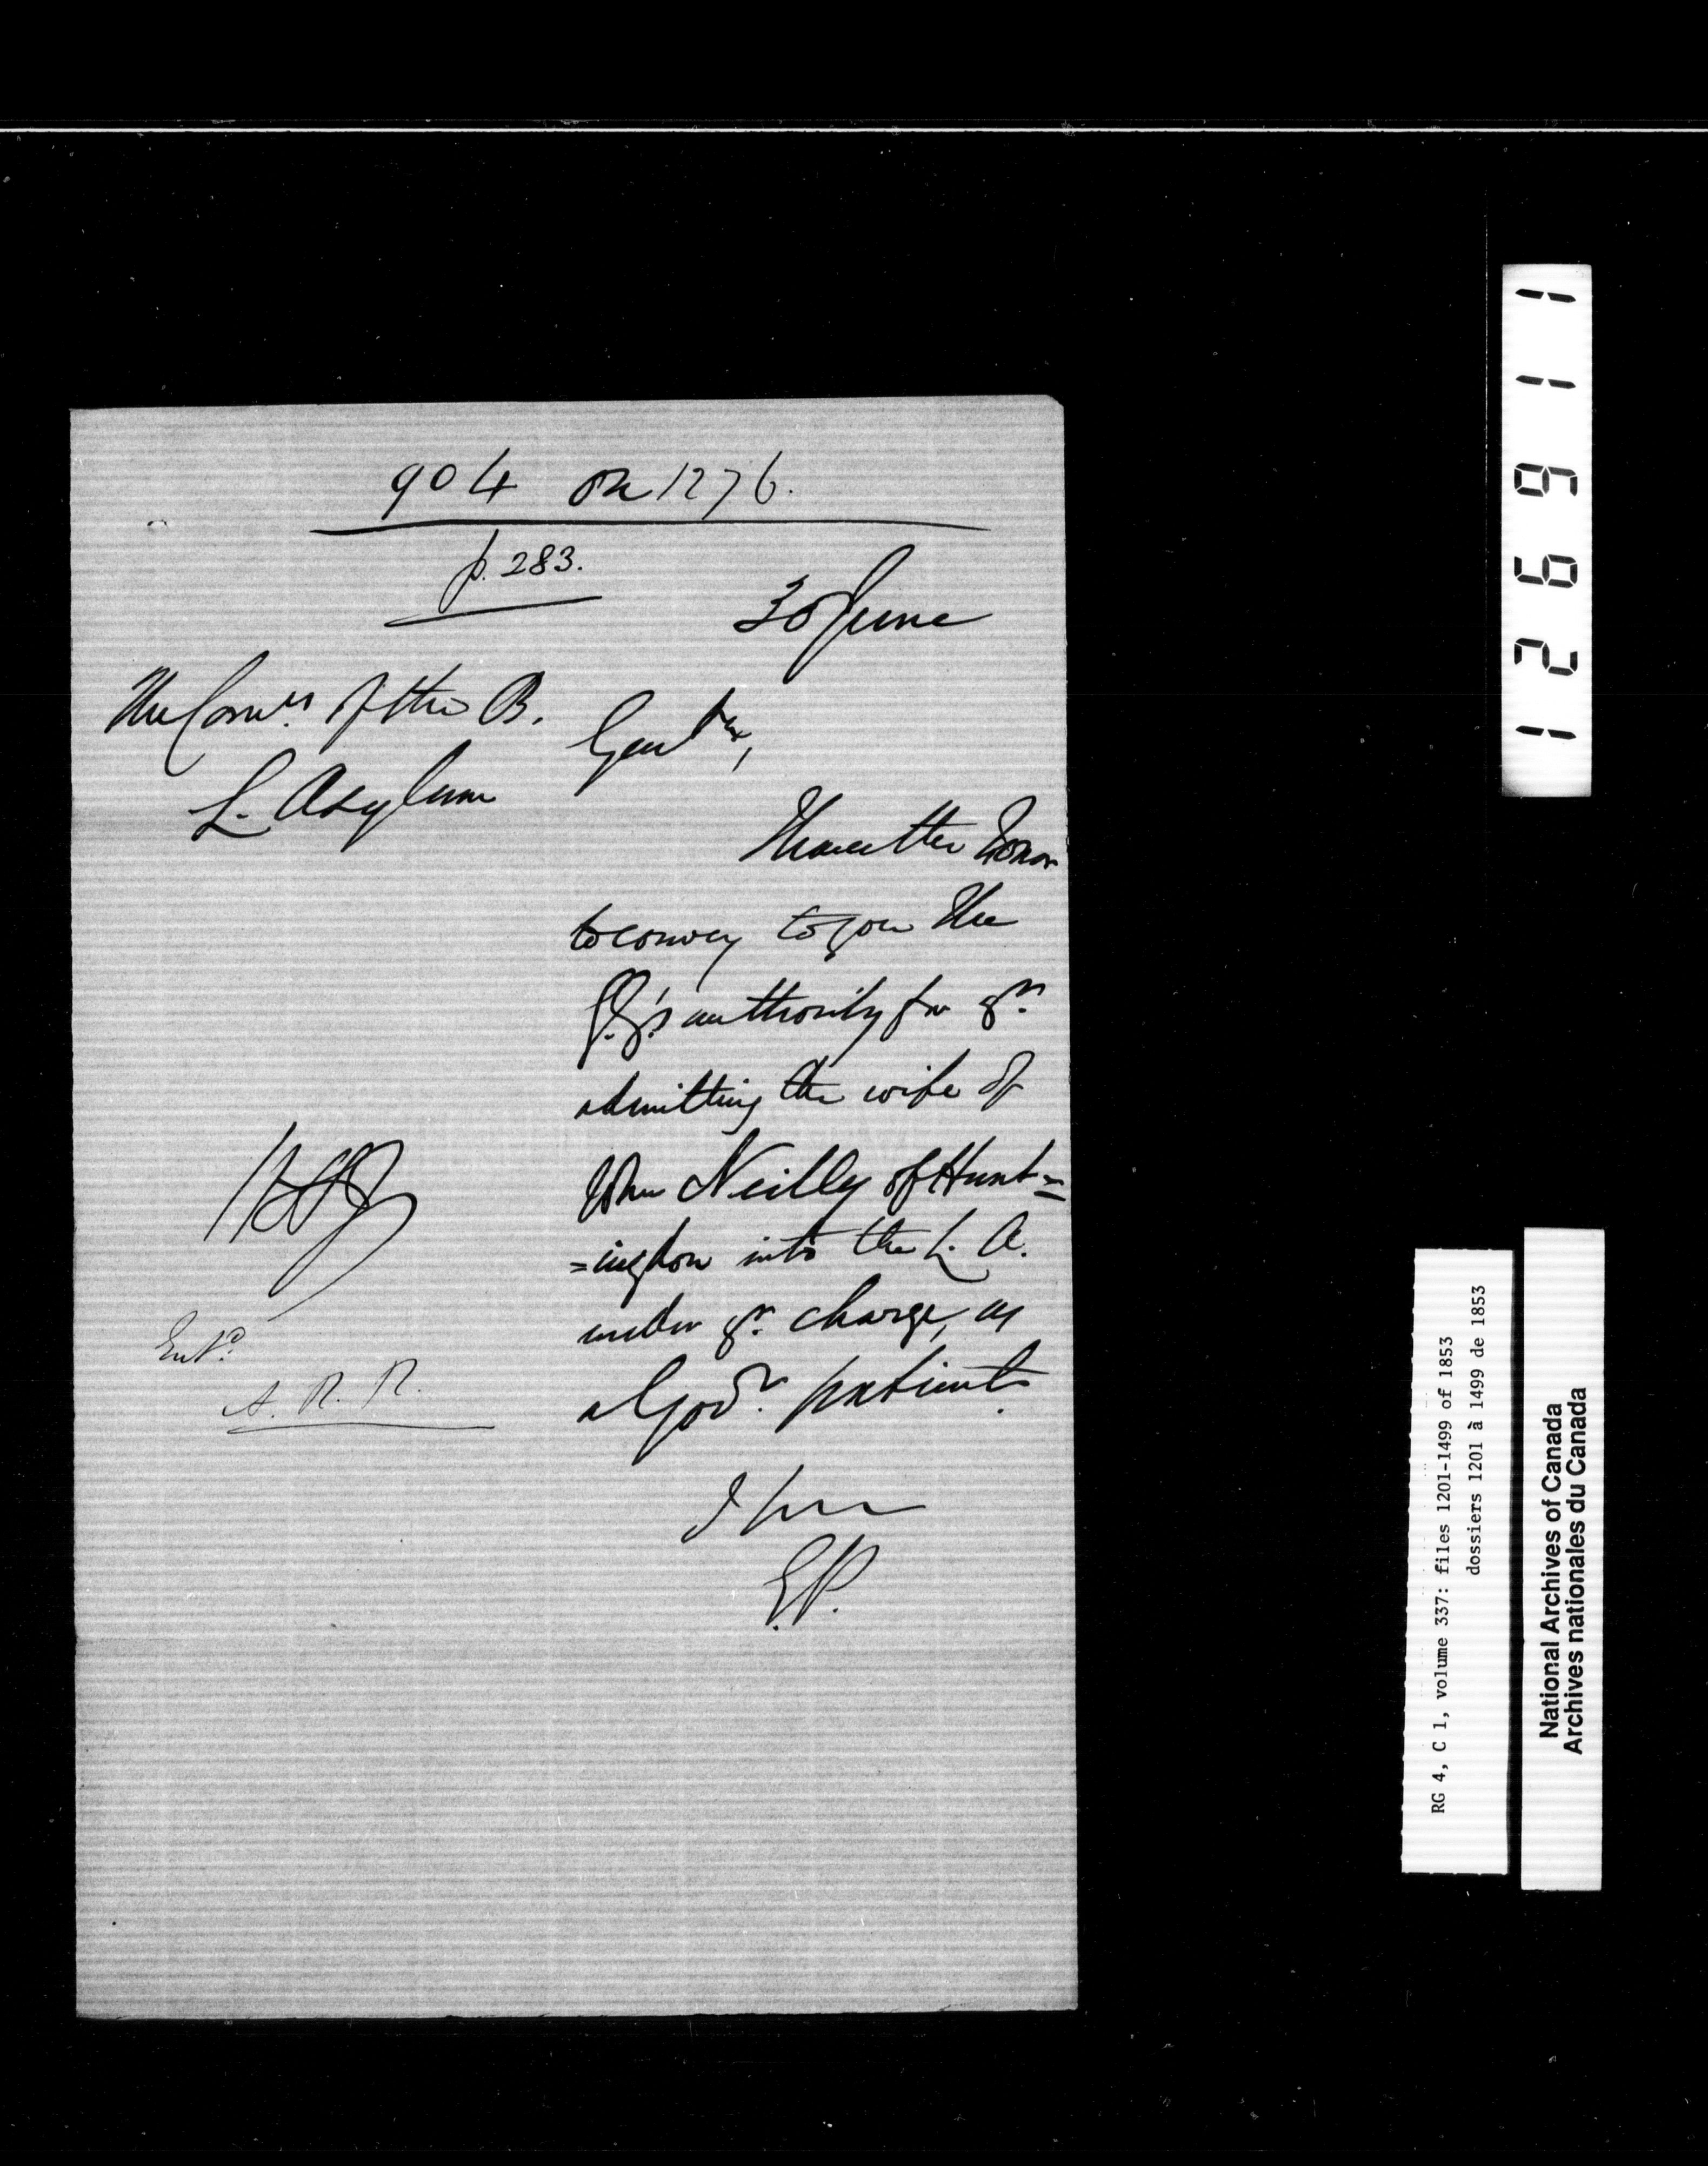 904 on 1276.
p. 283.
30 June
The Comrs. of the B.
L. Asylum
Gentn,
I have the honor
to convey to you the
G.G's authority for yr.
admitting the wife of
John Neilly of Hunt=
=ingdon into the L. A.
under yr. charge, as
a Govt. patient.
I have
E.P.
Entd.
A. R. R.
126911
RG 4, C 1, volume 337: files 1201-1499 of 1853
dossiers 1201 à 1499 de 1853
National Archives of Canada
Archives nationales du Canada